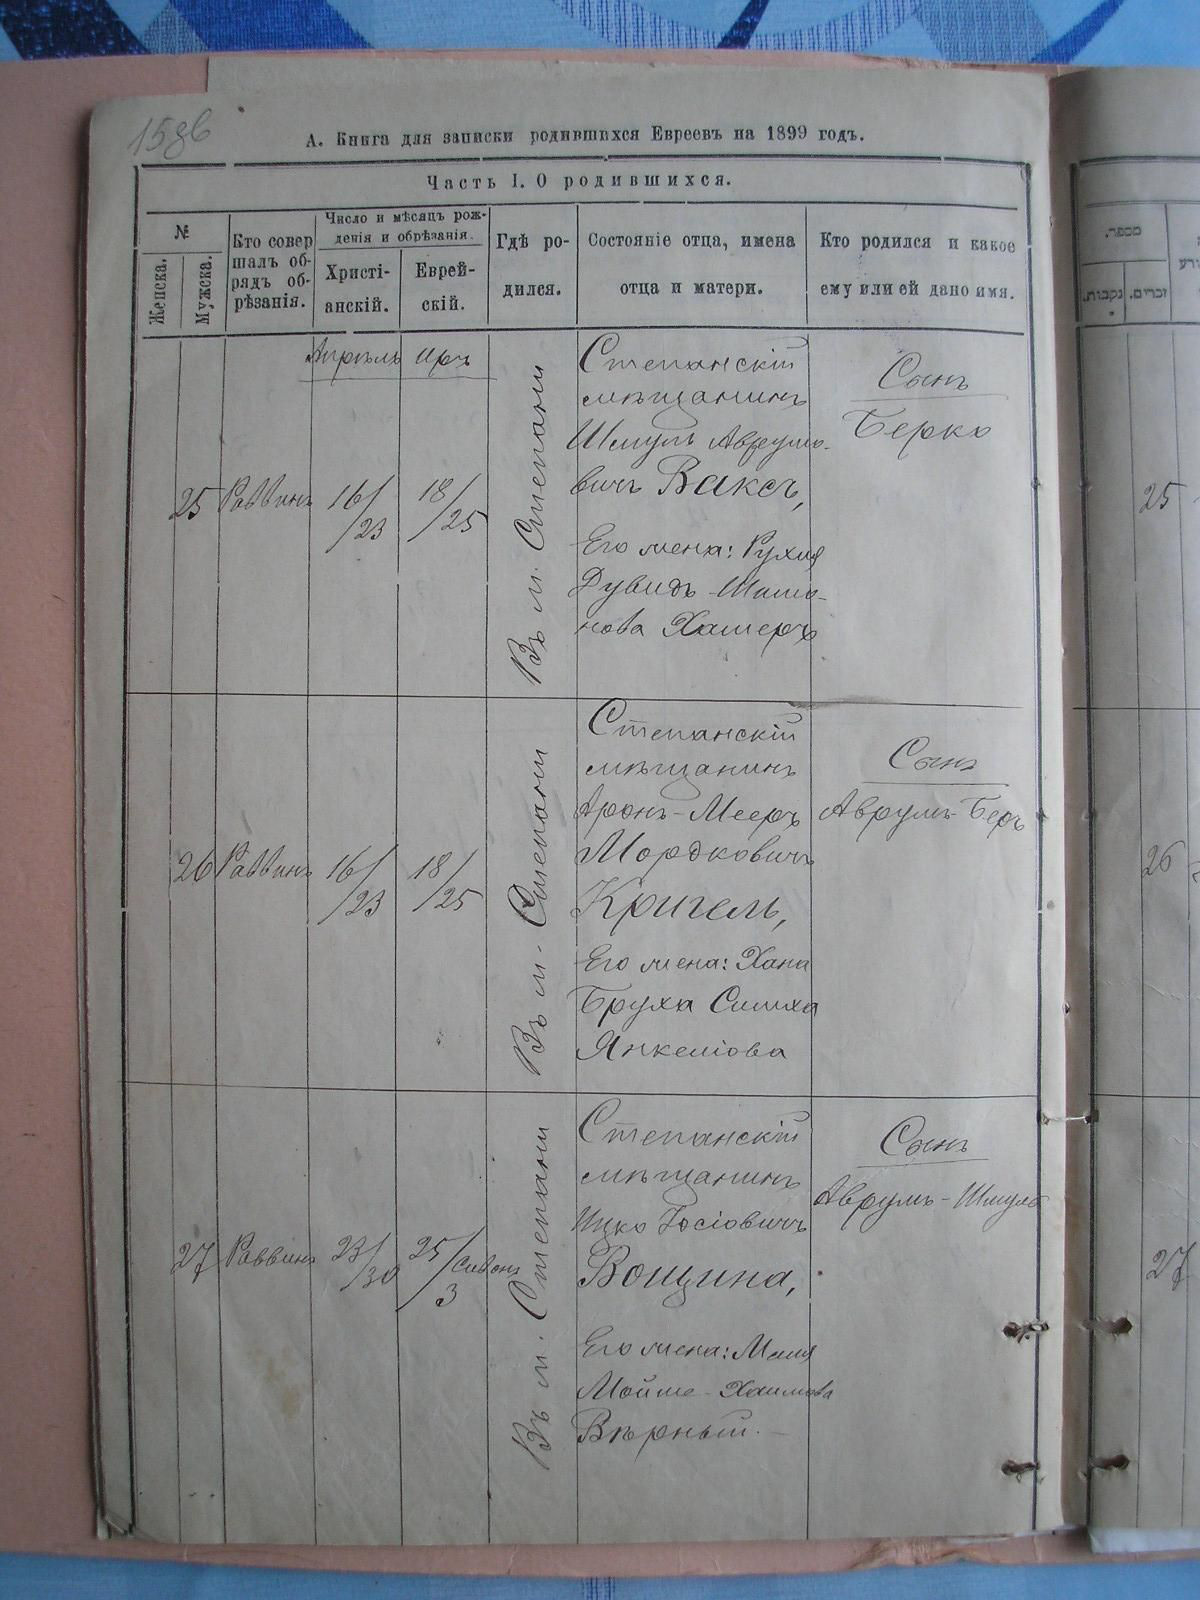 15зв
А. Книга для записки родившихся Евреевъ на 1899 годъ.
Часть I. О родившихся.
№
Женска.
Мужска.
Кто совер
шалъ об-
рядъ об-
рѣзанія.
Число и мѣсяцъ рож-
денія и обрѣзанія.
Христі-
анскій.
Еврей-
скій.
Гдѣ ро-
дился.
Состояніе отца, имена
отца и матери.
Кто родился и какое
ему или ей дано имя.
Апрѣль Иръ
25 Раввинъ 16/23 18/25
Въ м. Степани
Степанскій
мѣщанинъ
Шмуль Аврумо-
вичъ Ваксъ,
Его жена: Рухля
Дувидъ-Шимо-
нова Хамеръ
Сынъ
Берко
26 Раввинъ 16/23 18/25
Въ м. Степани
Степанскій
мѣщанинъ
Аронъ-Мееръ
Мордковичъ
Кригель,
Его жена: Хана
Бруха Симха
Янкеліова
Сынъ
Аврумъ-Беръ
27 Раввинъ 23/30 25/Сивонъ 3
Въ м. Степани
Степанскій
мѣщанинъ
Ицко Іосіовичъ
Вощина,
Его жена: Маля
Мойше-Хаимова
Вѣрный.-
Сынъ
Аврумъ-Шмуль
מספר.
נקבות.
זכרים.
25
26
27